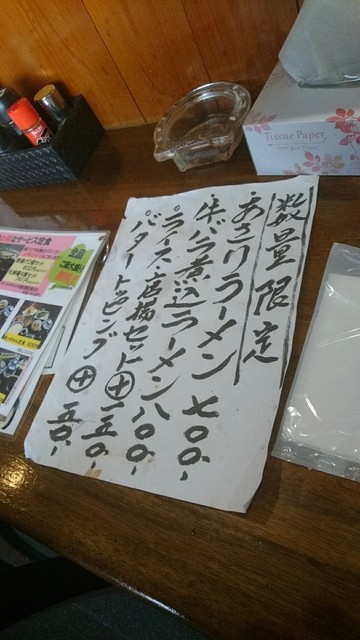 数量限定
・あさりラーメン 七〇〇-
・牛バラ煮込ラーメン 八〇〇-
・ライス・唐揚セット ⊕ 二五〇-
・バタートッピング ⊕ 五〇-
Tissue Paper
サービス定食